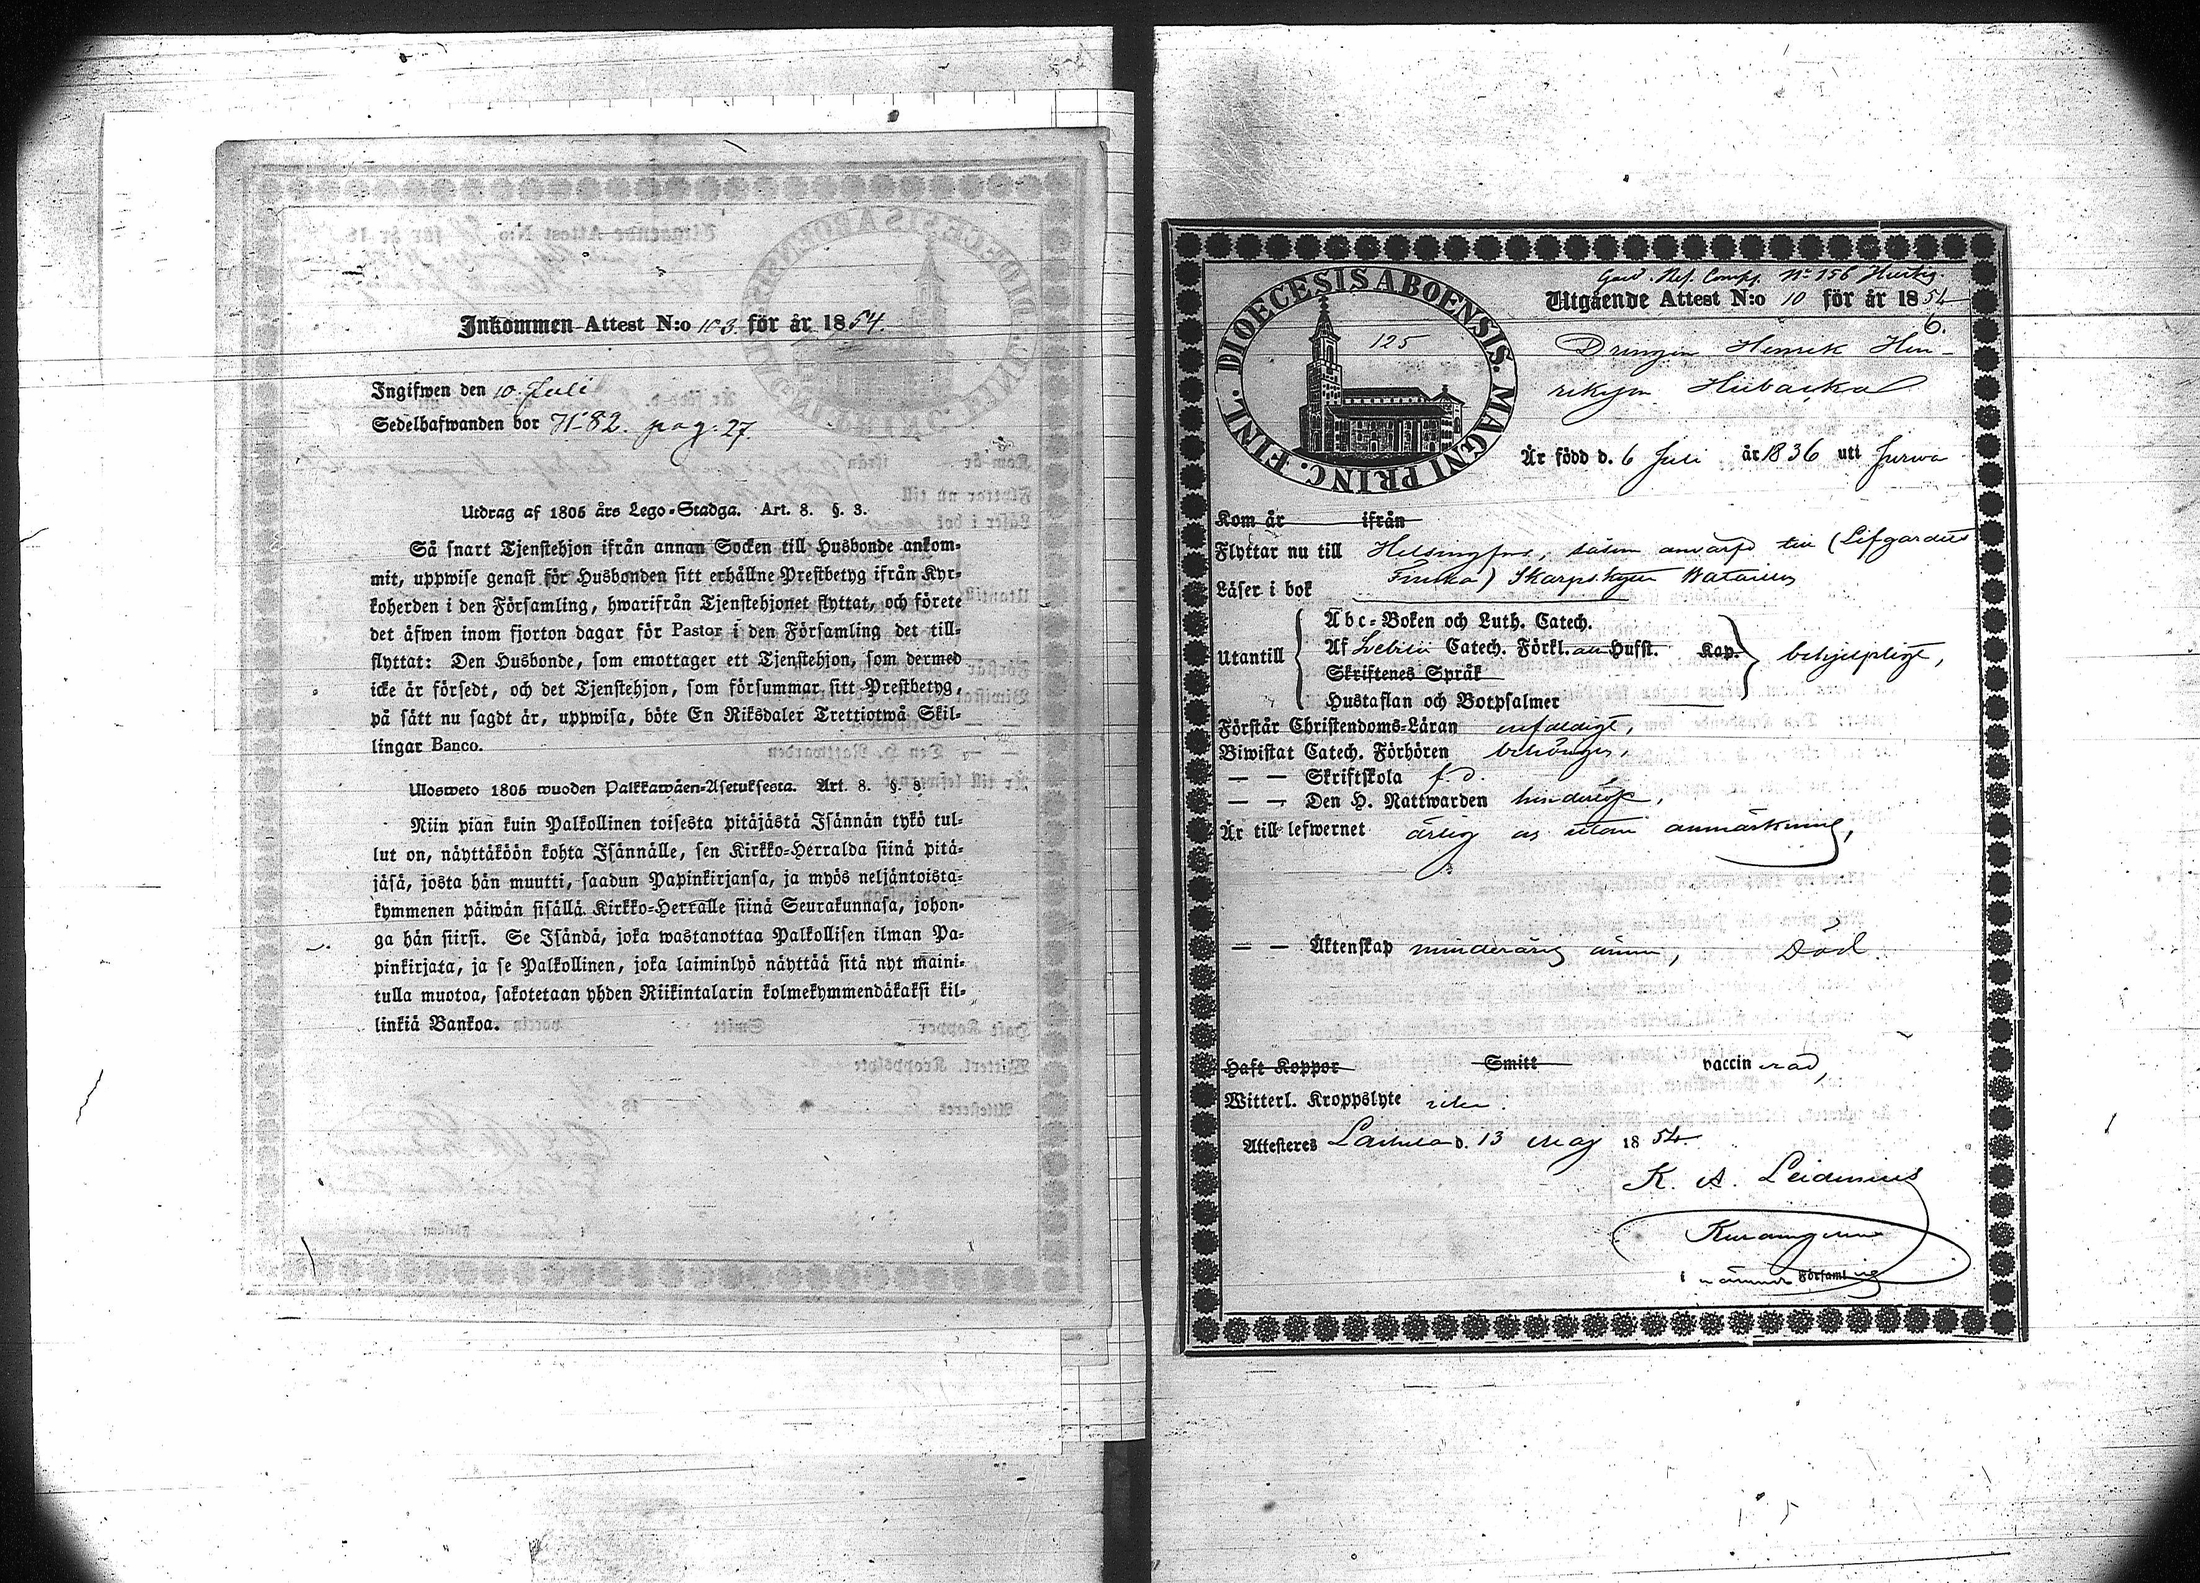 Inkommen Attest N:o 103 för år 1854.
Ingifwen den 10 Juli
Sedelhafwanden bor K 82. pag. 27.
Utdrag af 1805 års Lego-Stadga. Art. 8. §. 3.
Så snart Tjenstehjon ifrån annan Socken till Husbonde ankom-
mit, uppwise genast för Husbonden sitt erhållne Prestbetyg ifrån Kyr-
koherden i den Församling, hwarifrån Tjenstehjonet flyttat, och förete
det äfwen inom fjorton dagar för Pastor i den Församling det till-
flyttat: Den Husbonde, som emottager ett Tjenstehjon, som dermed
icke är försedt, och det Tjenstehjon, som försummar sitt Prestbetyg,
på sätt nu sagdt är, uppwisa, böte En Riksdaler Trettiotwå Skil-
lingar Banco.
Ulosweto 1805 wuoden Palkkawäen-Asetuksesta. Art. 8. §. 3.
Niin pian kuin Palkollinen toisesta pitäjästä Isännän tykö tul-
lut on, näyttäköön kohta Isännälle, sen Kirkko-Herralda siinä pitä-
jäsä, josta hän muutti, saadun Papinkirjansa, ja myös neljäntoista-
kymmenen päiwän sisällä Kirkko-Herralle siinä Seurakunnasa, johon-
ga hän siirsi. Se Isändä, joka wastanottaa Palkollisen ilman Pa-
pinkirjata, ja se Palkollinen, joka laiminlyö näyttää sitä nyt maini-
tulla muotoa, sakotetaan yhden Riikintalarin kolmekymmendäkaksi kil-
linkiä Bankoa.
DIOECESIS ABOENSIS. MAGNI PRINC. FINL.
125
Gard. Ref. Comp. No 156 Hurtig
Utgående Attest N:o 10 för år 1854
6.
Drengen Henrik Hen-
riksson Hiibacka
Är född d. 6 Juli år 1836 uti Jurva
Kom år ifrån
Flyttar nu till Helsingfors, såsom anvärfd till (Lifgardets
Finska) Skarpskytte Bataillon
Läser i bok
Utantill
Abc-Boken och Luth. Catech.
Af Svebilii Catech. Förkl. Hufst. Kap.
Skriftenes Språk
Hustaflan och Botpsalmer
behjelpligt,
Förstår Christendoms-Läran enfaldigt,
Biwistat Catech. Förhören behörigen,
— — Skriftskola f. d.
— — Den H. Nattwarden hinderlöst,
Är till lefwernet ärlig och utan anmärkning,
— — Äktenskap minderårig ännu, Död.
Haft Koppor Smitt vaccinerad,
Witterl. Kroppslyte utan.
Attesteres Laihela d. 13 Maj 1854.
K. A. Leidenius
i nämnde Församling